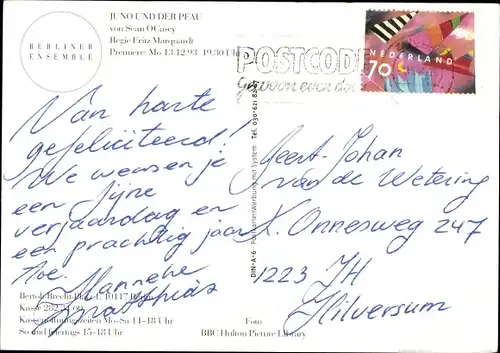 JUNO UND DER PFAU
von Sean O'Casey
Regie Fritz Marquardt
Premiere: Mo 13.12.93 19.30 Uhr
BERLINER
ENSEMBLE
POSTCODE
Gewoon even doen
NEDERLAND
70
Van harte
gefeliciteerd!
We wensen je
een fijne
verjaardag en
een prachtig jaar
toe.
Hanneke
Matthias
DIN-A-6 · PostkartenWerbung mit System · Tel. 030-621
Geert-Johan
van de Wetering
K. Onnesweg 247
1223 JH
Hilversum
Bertolt-Brecht-Platz 1, 10117 Berlin
Kasse 282
Kassenöffnungszeiten Mo-Sa 11-18 Uhr
So und feiertags 15-18 Uhr
Foto
BBC Hulton Picture Library